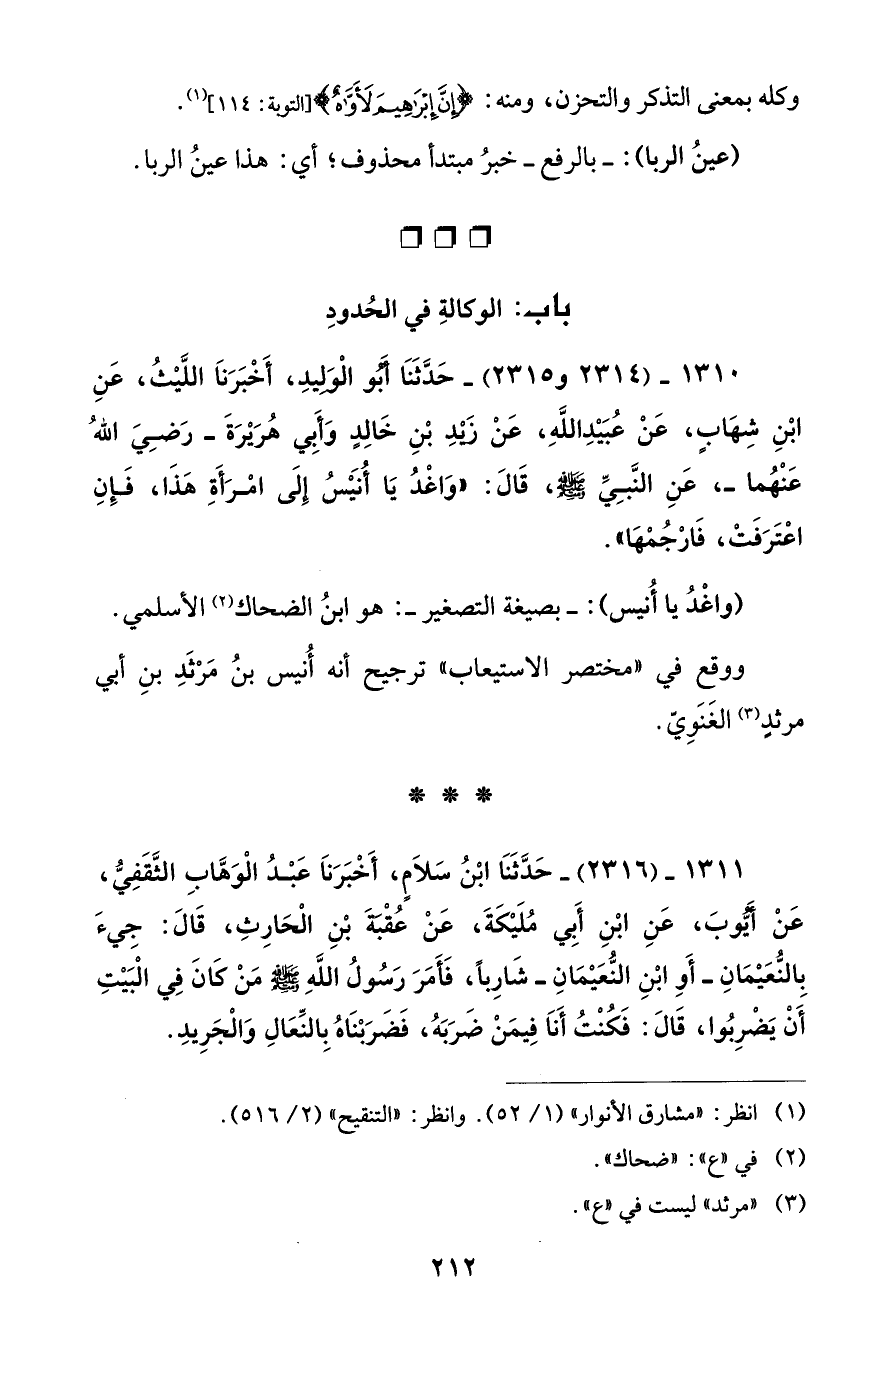 وكله بمعنى التذكر والتحزن، ومنه: ﴿إِنَّ إِبْرَاهِيمَ لَأَوَّاهٌ﴾[التوبة: ١١٤](١).
(عينُ الربا): ـ بالرفع ـ خبرُ مبتدأ محذوف؛ أي: هذا عينُ الربا.
❒ ❒ ❒
باب: الوكالةِ في الحُدودِ
١٣١٠ ـ (٢٣١٤ و٢٣١٥) ـ حَدَّثَنَا أَبُو الْوَلِيدِ، أَخْبَرَنَا اللَّيْثُ، عَنِ
ابْنِ شِهَابٍ، عَنْ عُبَيْدِاللَّهِ، عَنْ زَيْدِ بْنِ خَالِدٍ وَأَبِي هُرَيْرَةَ ـ رَضِيَ اللهُ
عَنْهُما ـ، عَنِ النَّبِيِّ ﷺ، قَالَ: «وَاغْدُ يَا أُنَيْسُ إِلَى امْرَأَةِ هَذَا، فَإِنِ
اعْتَرَفَتْ، فَارْجُمْهَا».
(واغْدُ يا أُنيس): ـ بصيغة التصغير ـ: هو ابنُ الضحاك(٢) الأسلمي.
ووقع في «مختصر الاستيعاب» ترجيح أنه أُنيس بنُ مَرْثَدِ بنِ أبي
مرثدٍ(٣) الغَنَوِيّ.
* * *
١٣١١ ـ (٢٣١٦) ـ حَدَّثَنَا ابْنُ سَلاَمٍ، أَخْبَرَنَا عَبْدُ الْوَهَّابِ الثَّقَفِيُّ،
عَنْ أَيُّوبَ، عَنِ ابْنِ أَبِي مُلَيْكَةَ، عَنْ عُقْبَةَ بْنِ الْحَارِثِ، قَالَ: جِيءَ
بِالنُّعَيْمَانِ ـ أَوِ ابْنِ النُّعَيْمَانِ ـ شَارِباً، فَأَمَرَ رَسُولُ اللَّهِ ﷺ مَنْ كَانَ فِي الْبَيْتِ
أَنْ يَضْرِبُوا، قَالَ: فَكُنْتُ أَنَا فِيمَنْ ضَرَبَهُ، فَضَرَبْنَاهُ بِالنِّعَالِ وَالْجَرِيدِ.
(١) انظر: «مشارق الأنوار» (١/ ٥٢). وانظر: «التنقيح» (٢/ ٥١٦).
(٢) في «ع»: «ضحاك».
(٣) «مرثد» ليست في «ع».
٢١٢